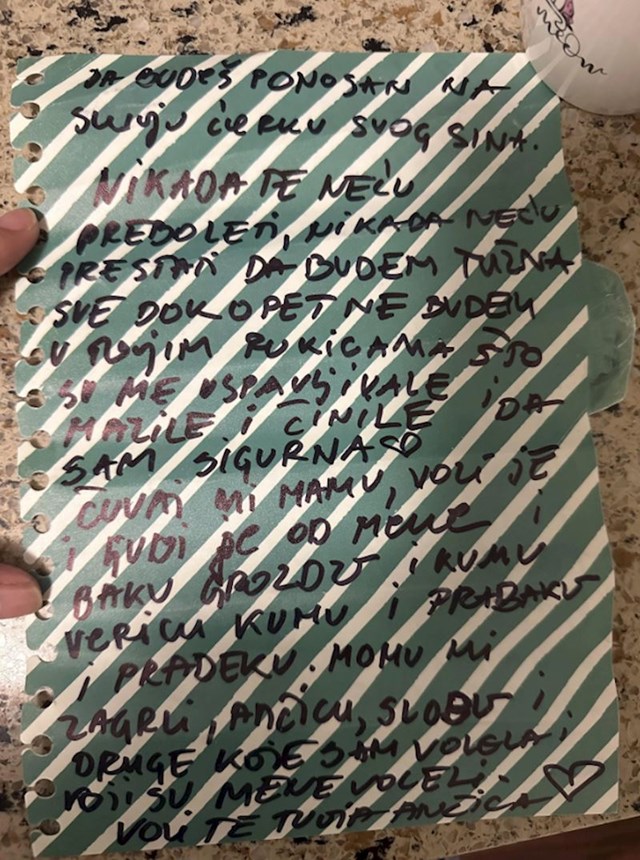 meow
DA BUDEŠ PONOSAN NA
svoju ćerku SVOG SINA.
NIKADA TE NEĆU
PREBOLETI, NIKADA NEĆU
PRESTATI DA BUDEM TUŽNA
SVE DOK OPET NE BUDEM
U TVOJIM RUKICAMA ŠTO
SU ME USPAVLJIVALE i
MAZILE I ČINILE DA
SAM SIGURNA♡
ČUVAJ MI MAMU, VOLI JE
i LJUBI je OD MENE i
BAKU GROZDU i KUMU
VERICU KUMU i PRABAKU
i PRADEKU. MOMU MI
ZAGRLI, ANČICU, SLOBU i
DRUGE KOJE SAM VOLELA i
KOJI SU MENE VOLELI.
VOLI TE TVOJA ANČICA ♡